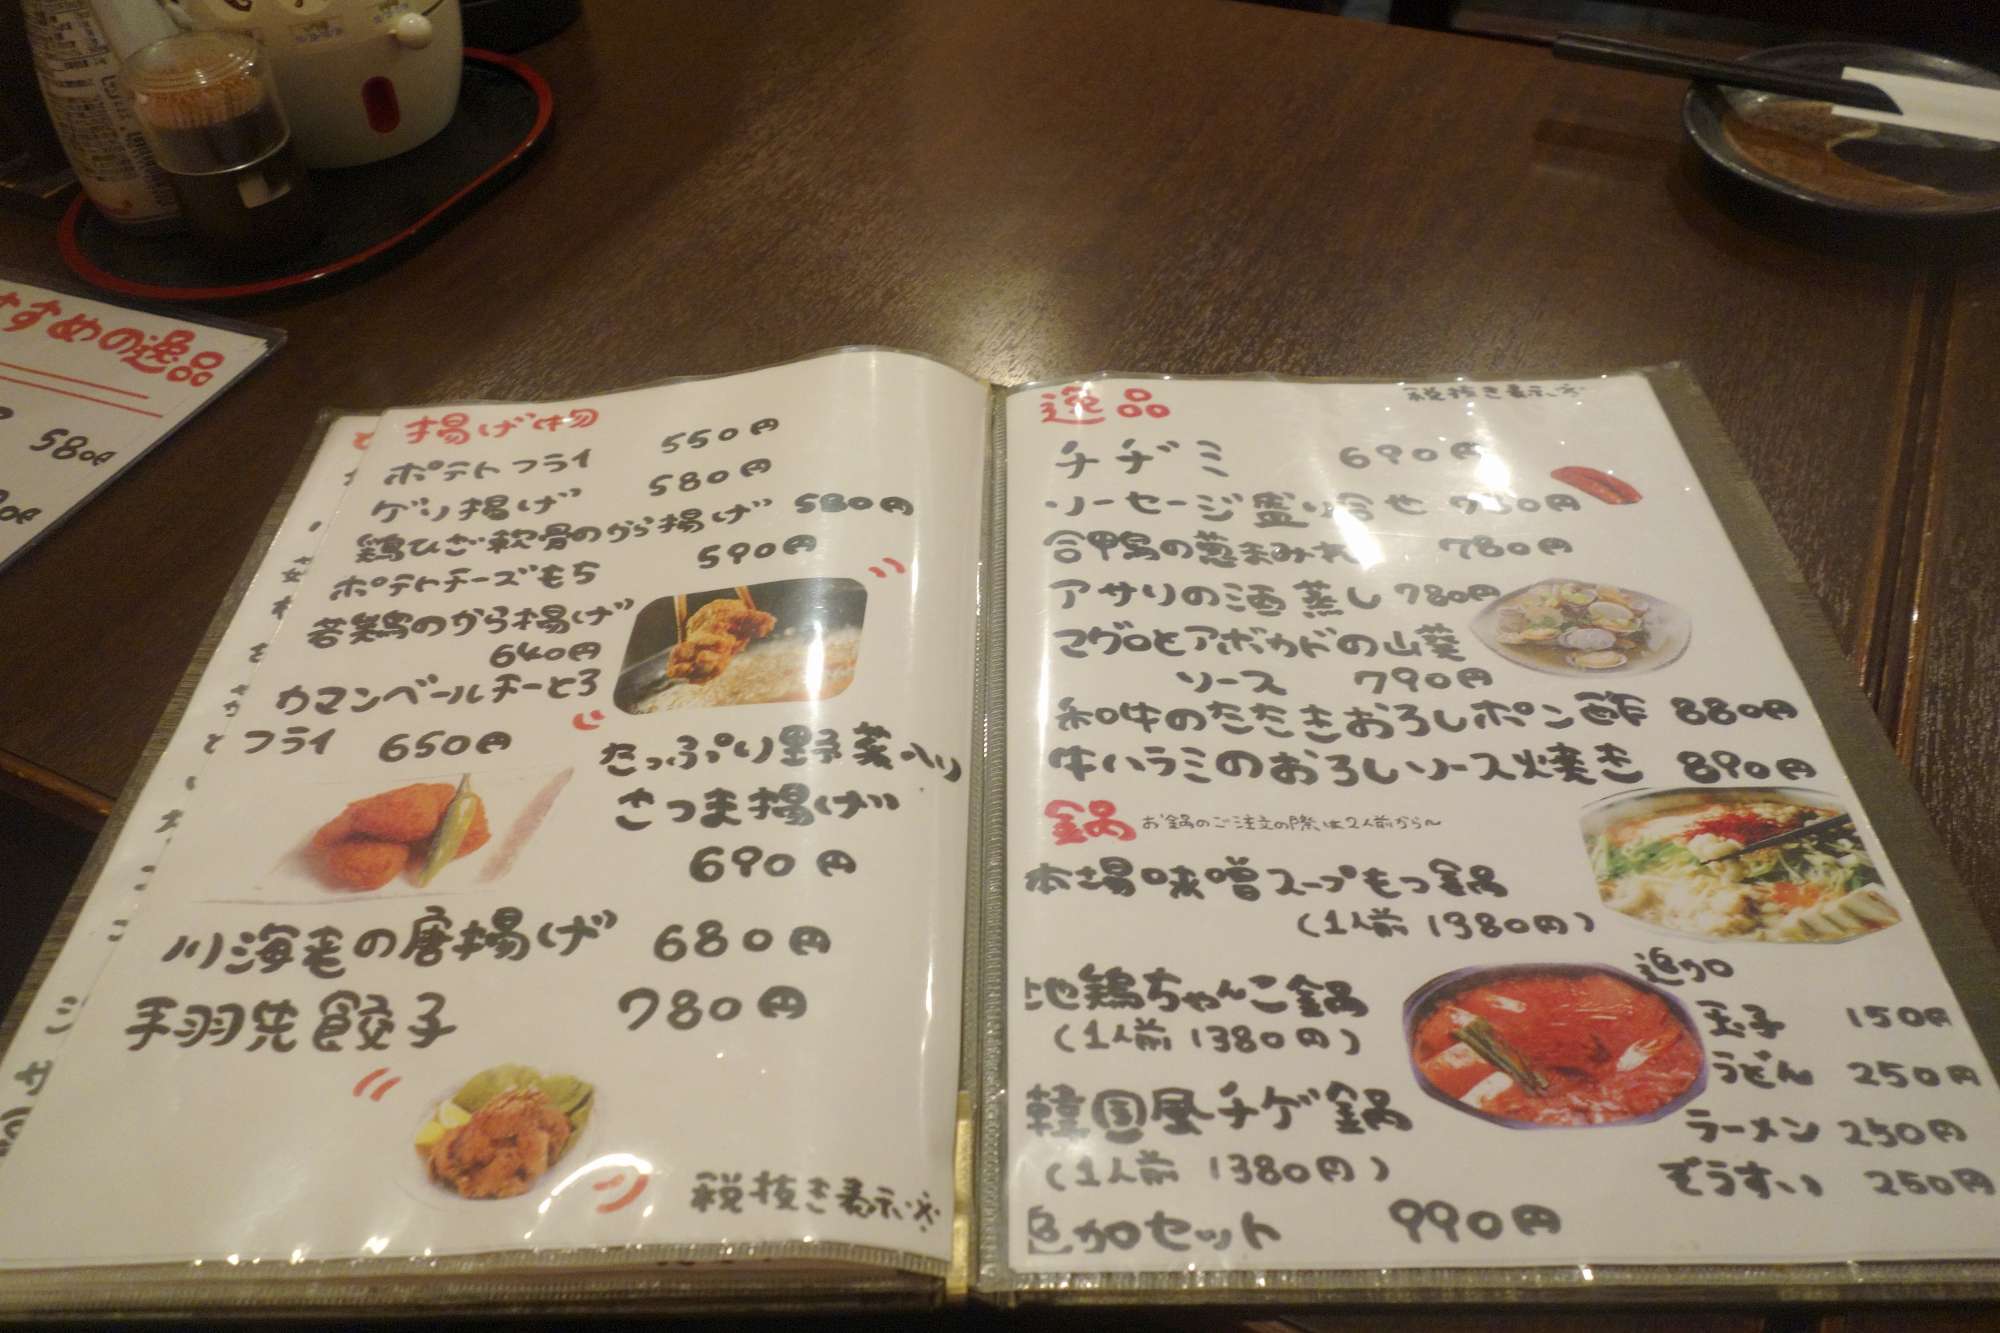 すすめの逸品
580円
揚げ物
ポテトフライ 550円
ゲソ揚げ 580円
鶏ひざ軟骨のから揚げ 580円
ポテトチーズもち 590円
若鶏のから揚げ
640円
カマンベールチーとろ
フライ 650円
たっぷり野菜入り
さつま揚げ
690円
川海老の唐揚げ 680円
手羽先餃子 780円
税抜き表示※
逸品
税抜き表示※
チヂミ 690円
ソーセージ盛り合せ 750円
合甲鳥の葱まみれ 780円
アサリの酒蒸し 780円
マグロとアボカドの山葵
ソース 790円
和牛のたたきおろしポン酢 880円
牛ハラミのおろしソース焼き 890円
鍋 お鍋のご注文の際は2人前から〜
本場味噌スープもつ鍋
(1人前 1380円)
地鶏ちゃんこ鍋
(1人前 1380円)
韓国風チゲ鍋
(1人前 1380円)
追加セット 990円
追加
玉子 150円
うどん 250円
ラーメン 250円
ぞうすい 250円